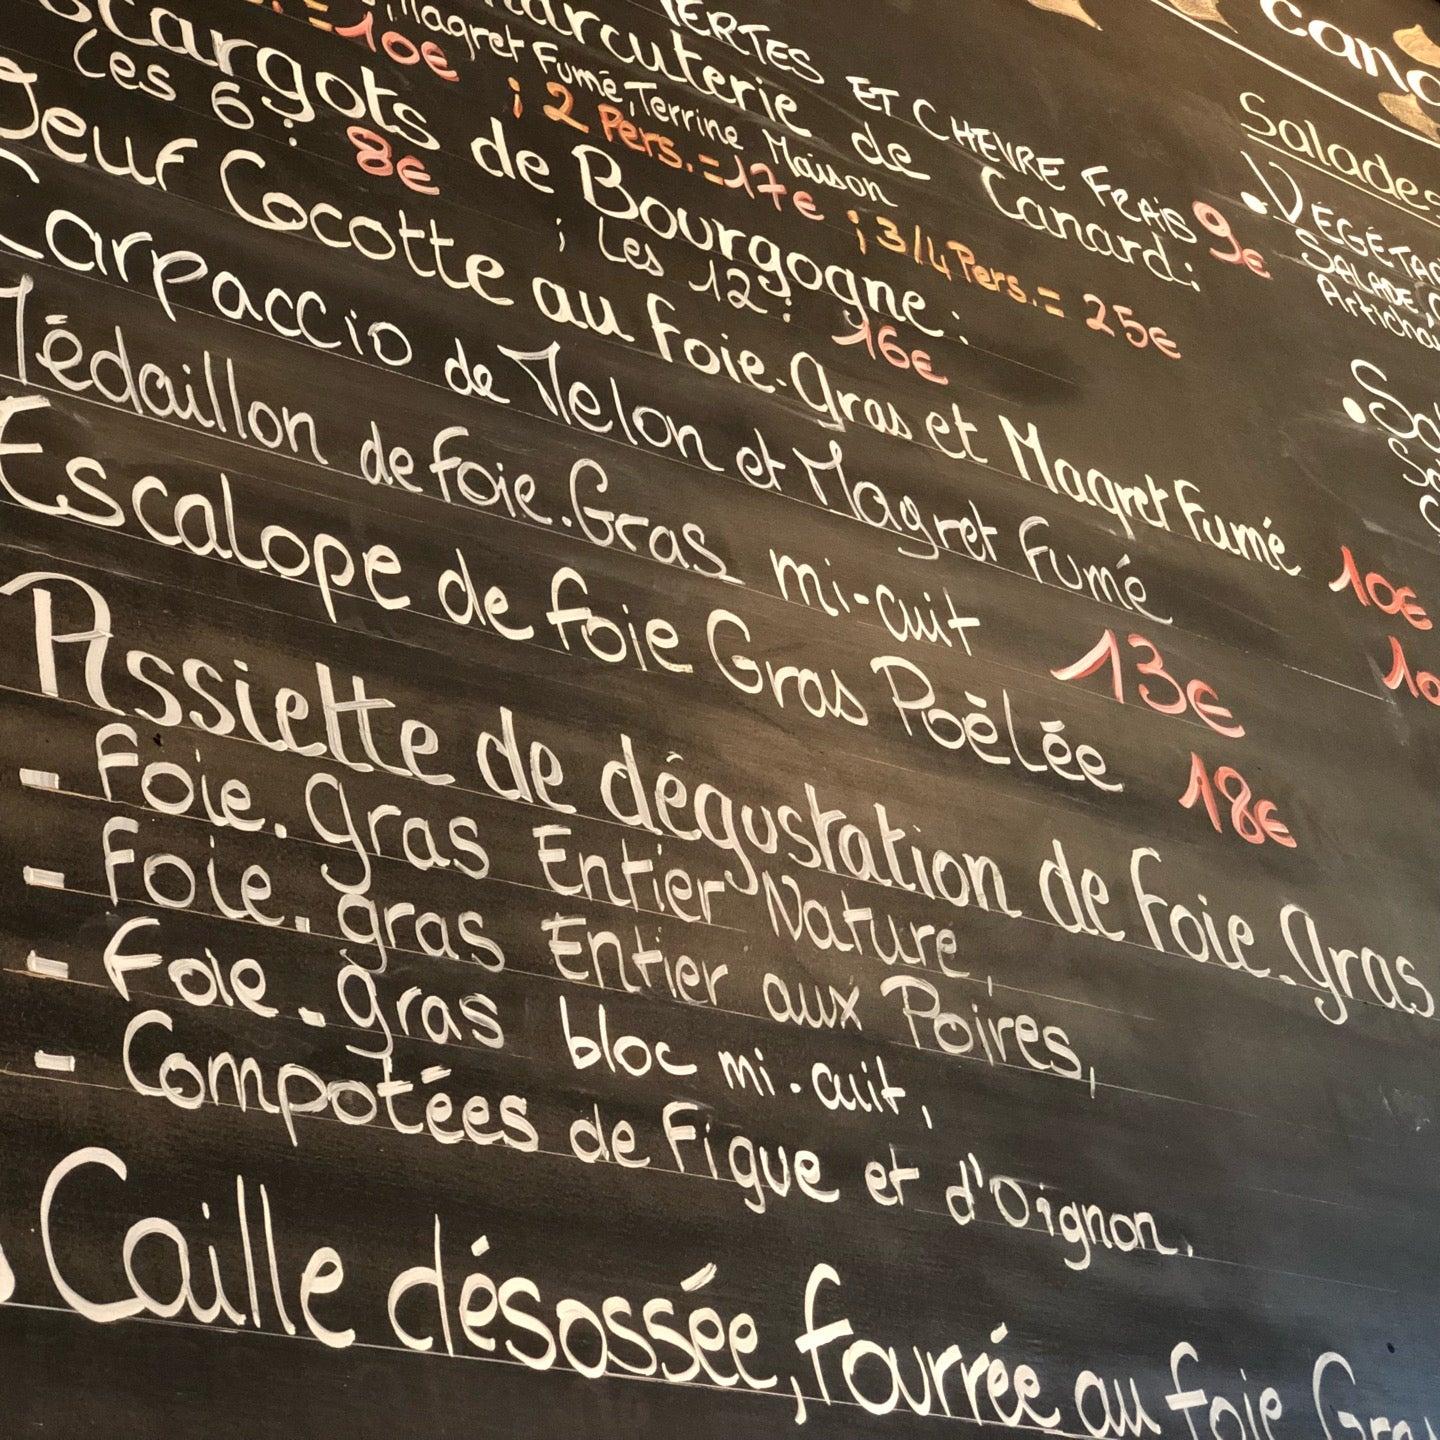 VERTES ET CHEVRE FRAIS 9€
charcuterie de Canard :
Magret Fumé, Terrine Maison
= 10€ ; 2 Pers. = 17€ ; 3/4 Pers. = 25€
scargots de Bourgogne :
Les 6 : 8€ ; Les 12 : 16€
Oeuf Cocotte au foie-Gras et Magret Fumé 10€
Carpaccio de Melon et Magret Fumé 10
Médaillon de foie-Gras mi-cuit 13€
Escalope de foie Gras Poëlée 18€
Assiette de dégustation de foie-gras
- Foie-gras Entier Nature,
- Foie-gras Entier aux Poires,
- Foie-gras bloc mi-cuit,
- Compotées de Figue et d'Oignon.
Caille désossée, fourrée au foie Gra
Cana
Salades
• VÉGÉTAR
SALADE,
Artichau